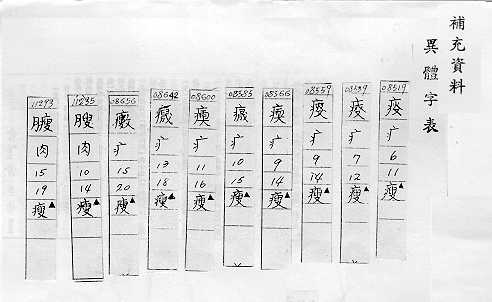 補充資料
異體字表
08519
疒
6
11
瘦▲
08539
疒
7
12
瘦▲
08559
疒
9
14
瘦▲
08566
疒
9
14
瘦▲
08585
疒
10
15
瘦▲
08600
疒
11
16
瘦▲
08642
疒
13
18
瘦▲
08656
疒
15
20
瘦▲
11235
膄
肉
10
14
瘦▲
11293
肉
15
19
瘦▲